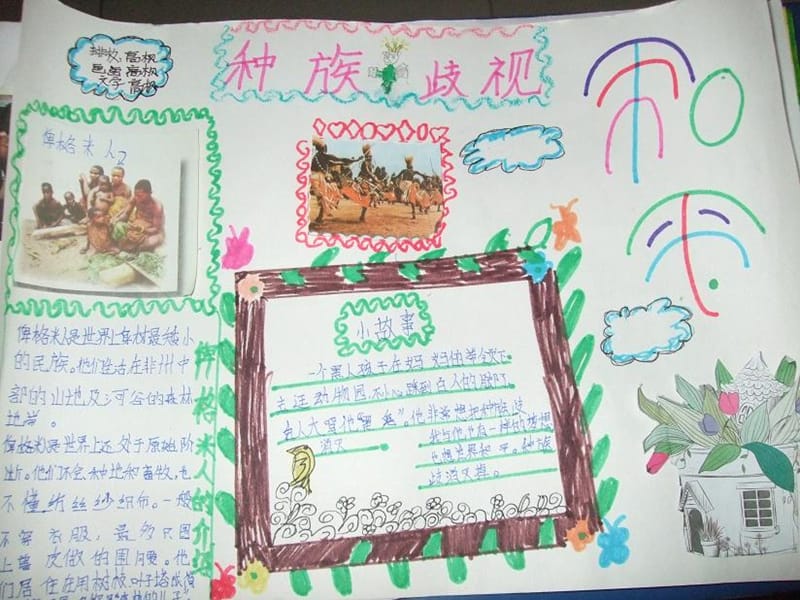 排版:高枫
色画:高枫
文字:高枫
种族歧视
俾格米人
小故事
一个黑人孩子在妈妈的带领下
去逛动物园,不小心踩到白人的脚,
白人大骂他“黑鬼”。他非常想把种族歧
视
消灭
他也想世界和平。种族
歧视灭辈。
俾格米人是世界上身材最矮小
的民族。他们生活在非州中
部的山地及河谷的森林
地带。
俾格米是世界上还处于原始阶
他们不会种地和畜牧,也
不懂纺丝纱织布。一般
不穿衣服,最多只围
上兽皮做的围腰。他
们居住在用树枝叶子搭成简
俾格米人的介绍